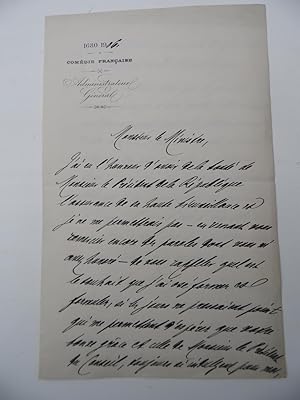 1680 19
COMÉDIE FRANÇAISE
Administrateur
Général
Monsieur le Ministre,
J'ai eu l'honneur d'avoir de la bonté de
Monsieur le Président de la République
l'assurance de sa haute bienveillance et
je ne me permettrais pas — en venant vous
encore des paroles dont vous m'
avez honoré — de vous rappeler quel est
le souhait que j'ai osé former et
formuler, si les jours ne
qui me permettent d'espérer que votre
bonne grâce et celle de Monsieur le Président
du Conseil, toujours si indulgent pour moi,